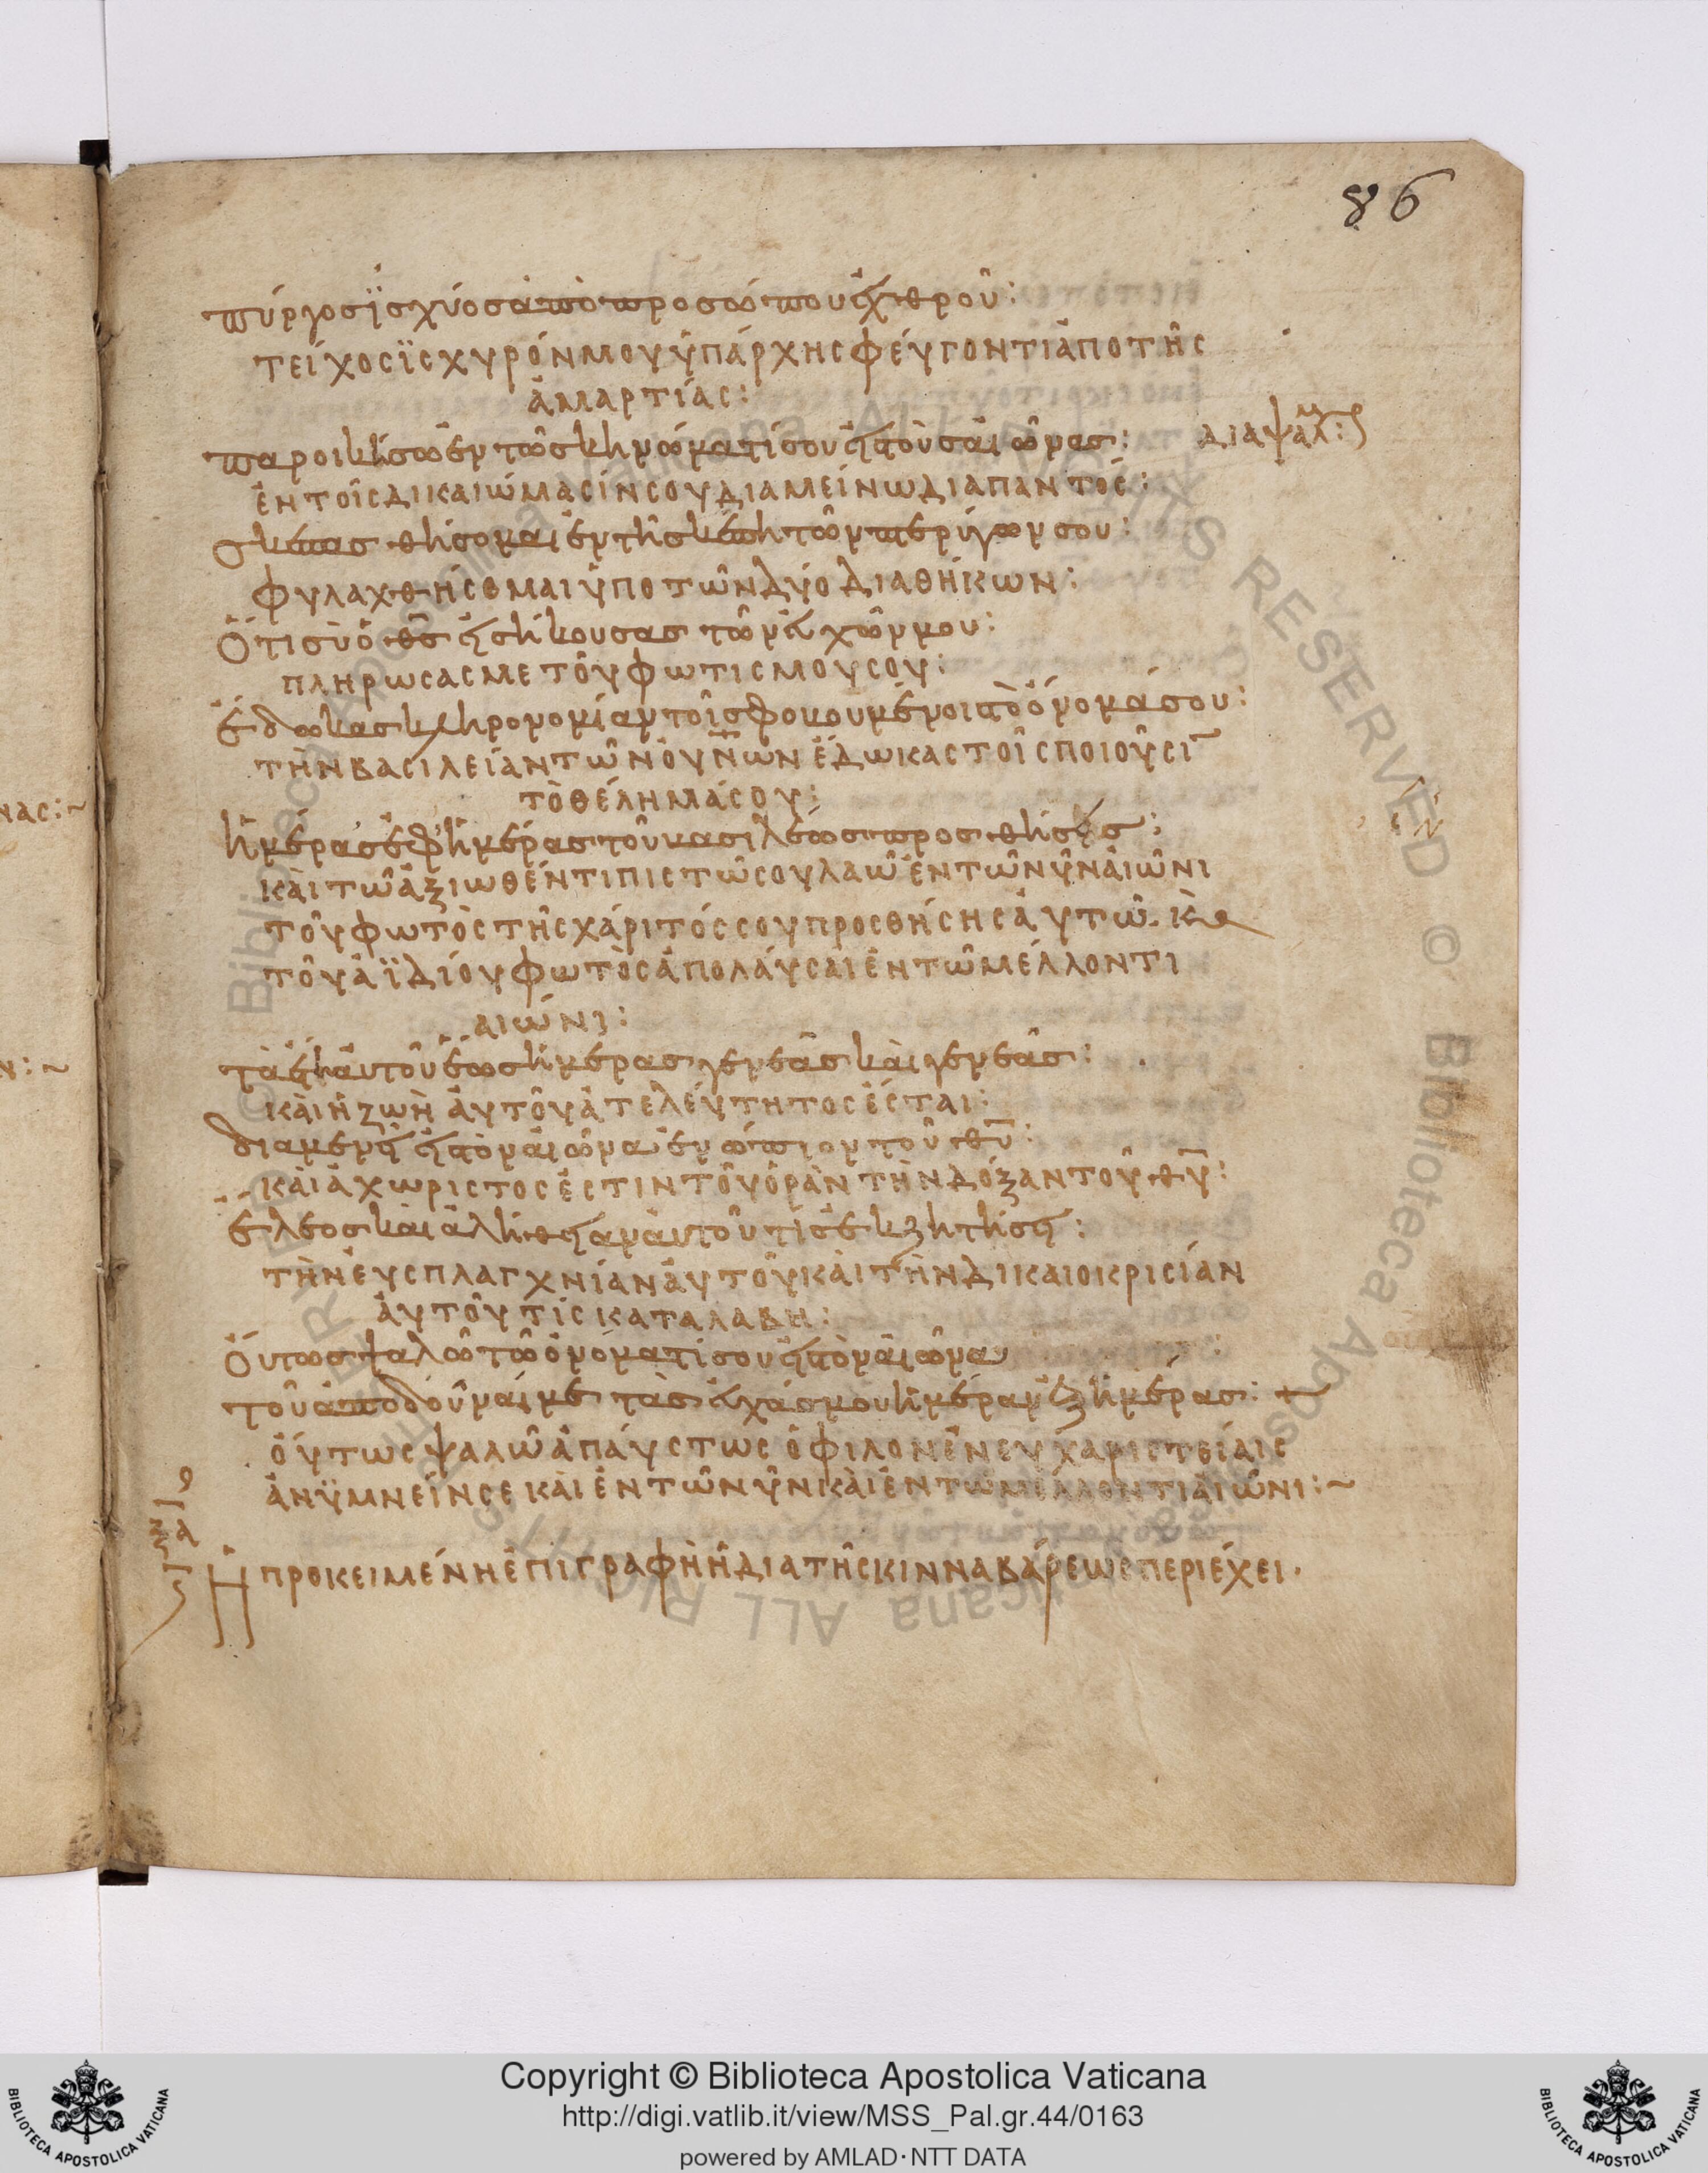 86
πύργοσϊσχύοσἀπὸπροσώπουἐχθροῦ:
τείχοςϊςχυρόνμουὑπάρχηςφέυγοντιἀποτῆς
ἁμαρτίας:
παροικήσωἐντῶσκηνώματίσουεἰςτοὺσἀιῶνασ: διαψαλ:
ἐντοῖςδικαιώμαςίνςουδιαμείνωδιαπαντός:
σκεπασθήσομαιἐντῆσκέπητῶνπτερύγωνσου:
φυλαχθήςομαιὑποτῶνδύοδιαθήκων:
Ὅτισὺὁθσεἰσήκουσαστῶνἐυχῶνμου:
πληρωςαςμετοῦφωτιςμούςου:
ἔδωκασκληρονομίαντοῖσφοβουμένοιστὸὄνομάσου:
τὴνβαςιλείαντῶνὀυνωνἔδωκαςτοῖςποιοῦςι
τὸθέλημάςου:
ἡμέρασἐφἡμέραστοῦβασιλέωσπροσθήσεισ:
κὰιτῶἀξιωθέντιπιςτῶςουλαῶἐντῶνῦνἀιῶνι
τοῦφωτὸςτῆςχάριτόςςουπροςθήςηςἀυτῶ. κὲ
τοῦἀϊδίουφωτὸςἀπολάυςαιἐντῶμέλλοντι
αιώνι:
τὰἔτηἀυτοῦἕωσἡμέρασγενεᾶσκὰιγενεᾶσ:
κὰιἡζωὴἀυτοῦἀτελέυτητοςἔςται:
διαμενεῖεἰςτὸνἀιῶναἐνώπιοντοῦθυ:
κὰιἀχωριςτοςἔςτιντοῦὁρὰντὴνδόξαντοῦθυ:
ἔλεοσκὰιἀλήθειανἀυτοῦτίσἐκζητήσει:
τὴνἐυςπλαγχνίανἀυτοῦκὰιτὴνδικαιοκριςίαν
ἀυτοῦτίςκαταλαβη:
Ὅυτωσψαλῶτῶὀνόματίσουεἰςτὸνἀιῶνα
τοῦἀποδοῦναίμετὰσἐυχάσμουἡμέρανἐξἡμέρασ:
ὅυτωςψαλῶἀπάυςτωςὀφιλονἔνευχαριςτείαις
ἀνϋμνείνςεκὰιἐντῶνῦνκὰιἐντῶμέλλοντιἀιῶνι:~
ξα
Ἡπροκειμένηἐπιγραφὴἡδιατῆςκινναβάρεωςπεριέχει.
νας:~
ν:~
Copyright © Biblioteca Apostolica Vaticana
http://digi.vatlib.it/view/MSS_Pal.gr.44/0163
powered by AMLAD·NTT DATA
BIBLIOTECA APOSTOLICA VATICANA
BIBLIOTECA APOSTOLICA VATICANA